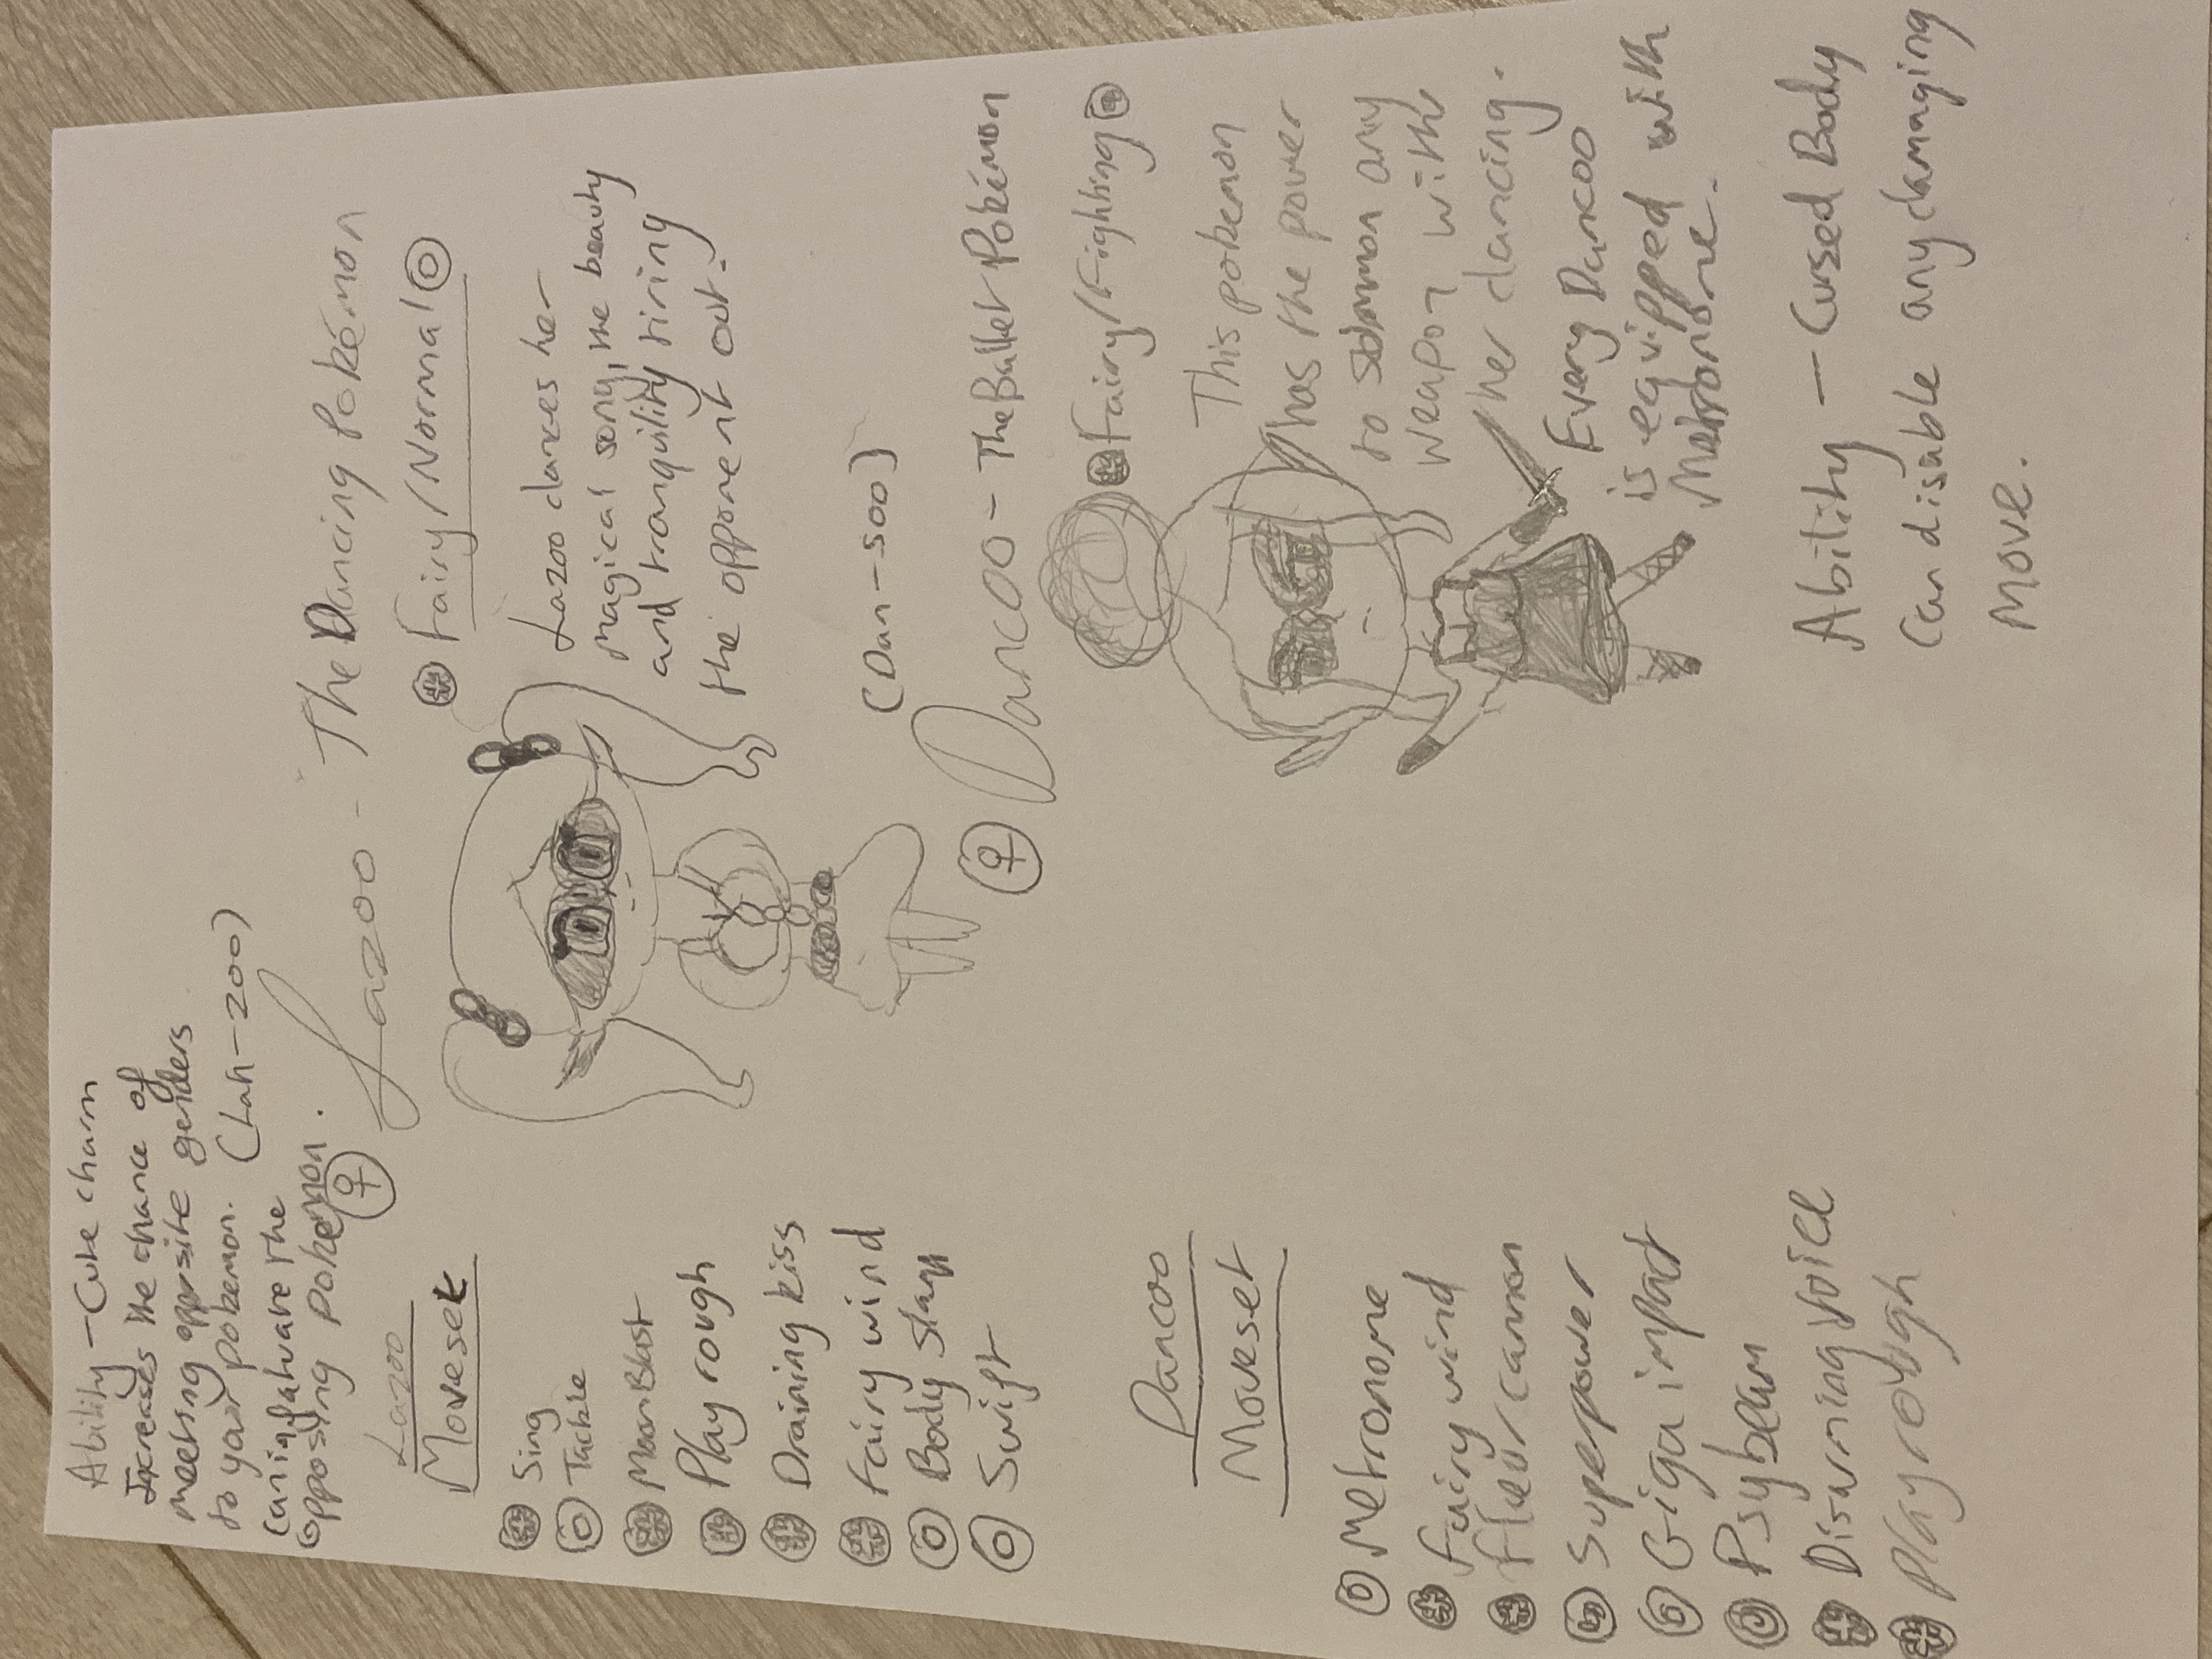 Ability - Cute charm
Increases the chance of
meeting opposite genders
to your pokemon.
Can infatuate the
opposing pokemon.
(Lah-zoo)
♀ Lazoo - The Dancing Pokémon
Fairy/Normal
Lazoo dances her
magical song, the beauty
and tranquility tiring
the opponent out.
Lazoo
Moveset
Sing
Tackle
MoonBlast
Play rough
Draining kiss
Fairy wind
Body Slam
Swift
(Dan-soo)
♀ Dancoo - The Ballet Pokémon
Fairy/Fighting
This pokemon
has the power
to summon any
weapon with
her dancing.
Every Dancoo
is equipped with
Metronome.
Ability - Cursed Body
Can disable any damaging
move.
Dancoo
Moveset
Metronome
Fairy wind
Fleur cannon
Superpower
Giga impact
Psybeam
Disarning Voice
Play rough